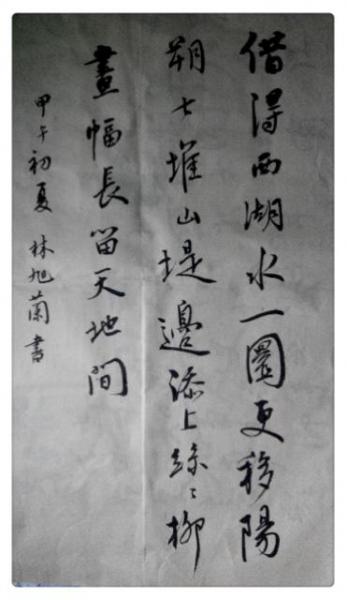 借得西湖水一圜更移陽
朔七堆山堤邊添上絲〻柳
畫幅長留天地間
甲午初夏 林旭蘭書